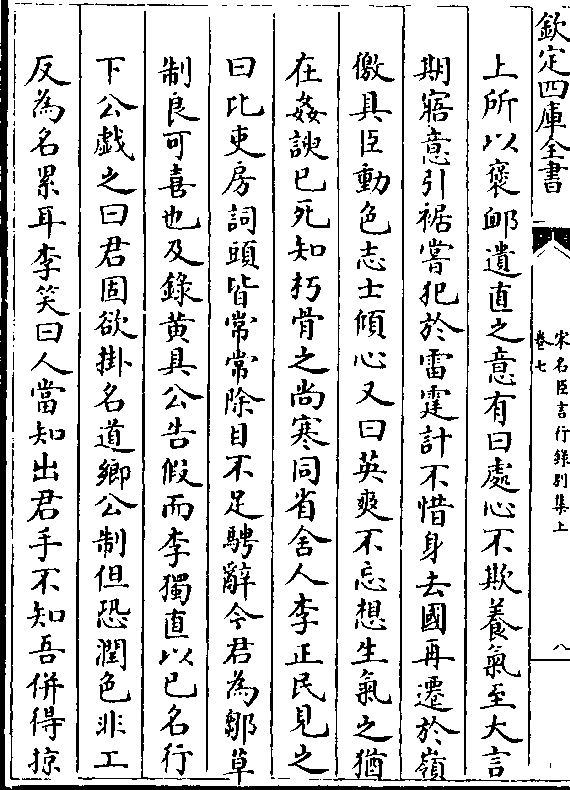 欽定四庫全書
宋名臣言行錄別集上
卷七
八
上所以褒䘏遺直之意有曰處心不欺養氣至大言
期寤意引裾嘗犯於雷霆計不惜身去國再遷於嶺
徼具臣動色志士傾心又曰英爽不忘想生氣之猶
在姦諛已死知朽骨之尚寒同省舍人李正民見之
曰比吏房詞頭皆常常除目不足騁辭今君為鄒草
制良可喜也及錄黄具公告假而李獨直以已名行
下公戯之曰君固欲掛名道鄉公制但恐潤色非工
反為名累耳李笑曰人當知出君手不知吾併得掠